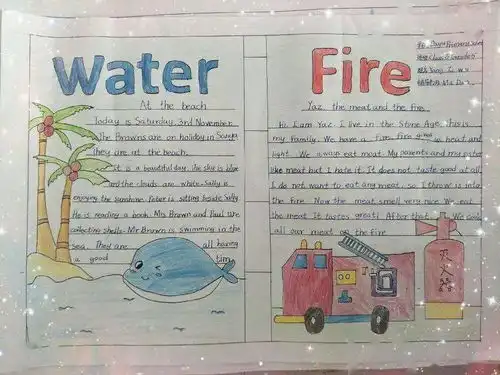 Water
At the beach
Today is Saturday, 3rd November.
The Browns are on holiday in Sanya
They are at the beach.
It is a beautiful day. The sky is blue
and the clouds are white. Sally is
enjoying the sunshine. Peter is sitting beside Sally.
He is reading a book. Mrs Brown and Paul are
collecting shells. Mr Brown is swimming in the
sea. They are all having
a good time
Fire
Yaz, the meat and the fire
Hi, I am Yaz. I live in the Stone Age. This is
my family. We have a fire. Fire gives us heat and
light. We always eat meat. My parents and my sister
like meat but I hate it. It does not taste good at all.
I do not want to eat any meat, so I throw it into
the fire. Now the meat smells very nice. We eat
the meat. It tastes great! After that, We cook
all our meat on the fire
灭火器